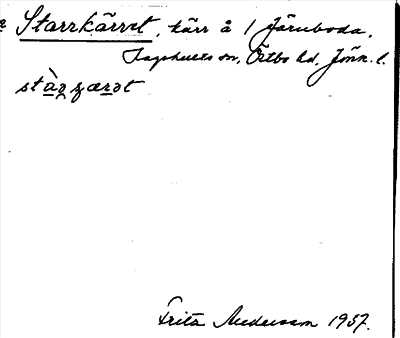 Starrkärret, kärr å 1 Järnboda,
Tagshults sn, Östbo hd, Jönk. l.
stàʀ̥ ʒærət
Frits Andersson 1937.